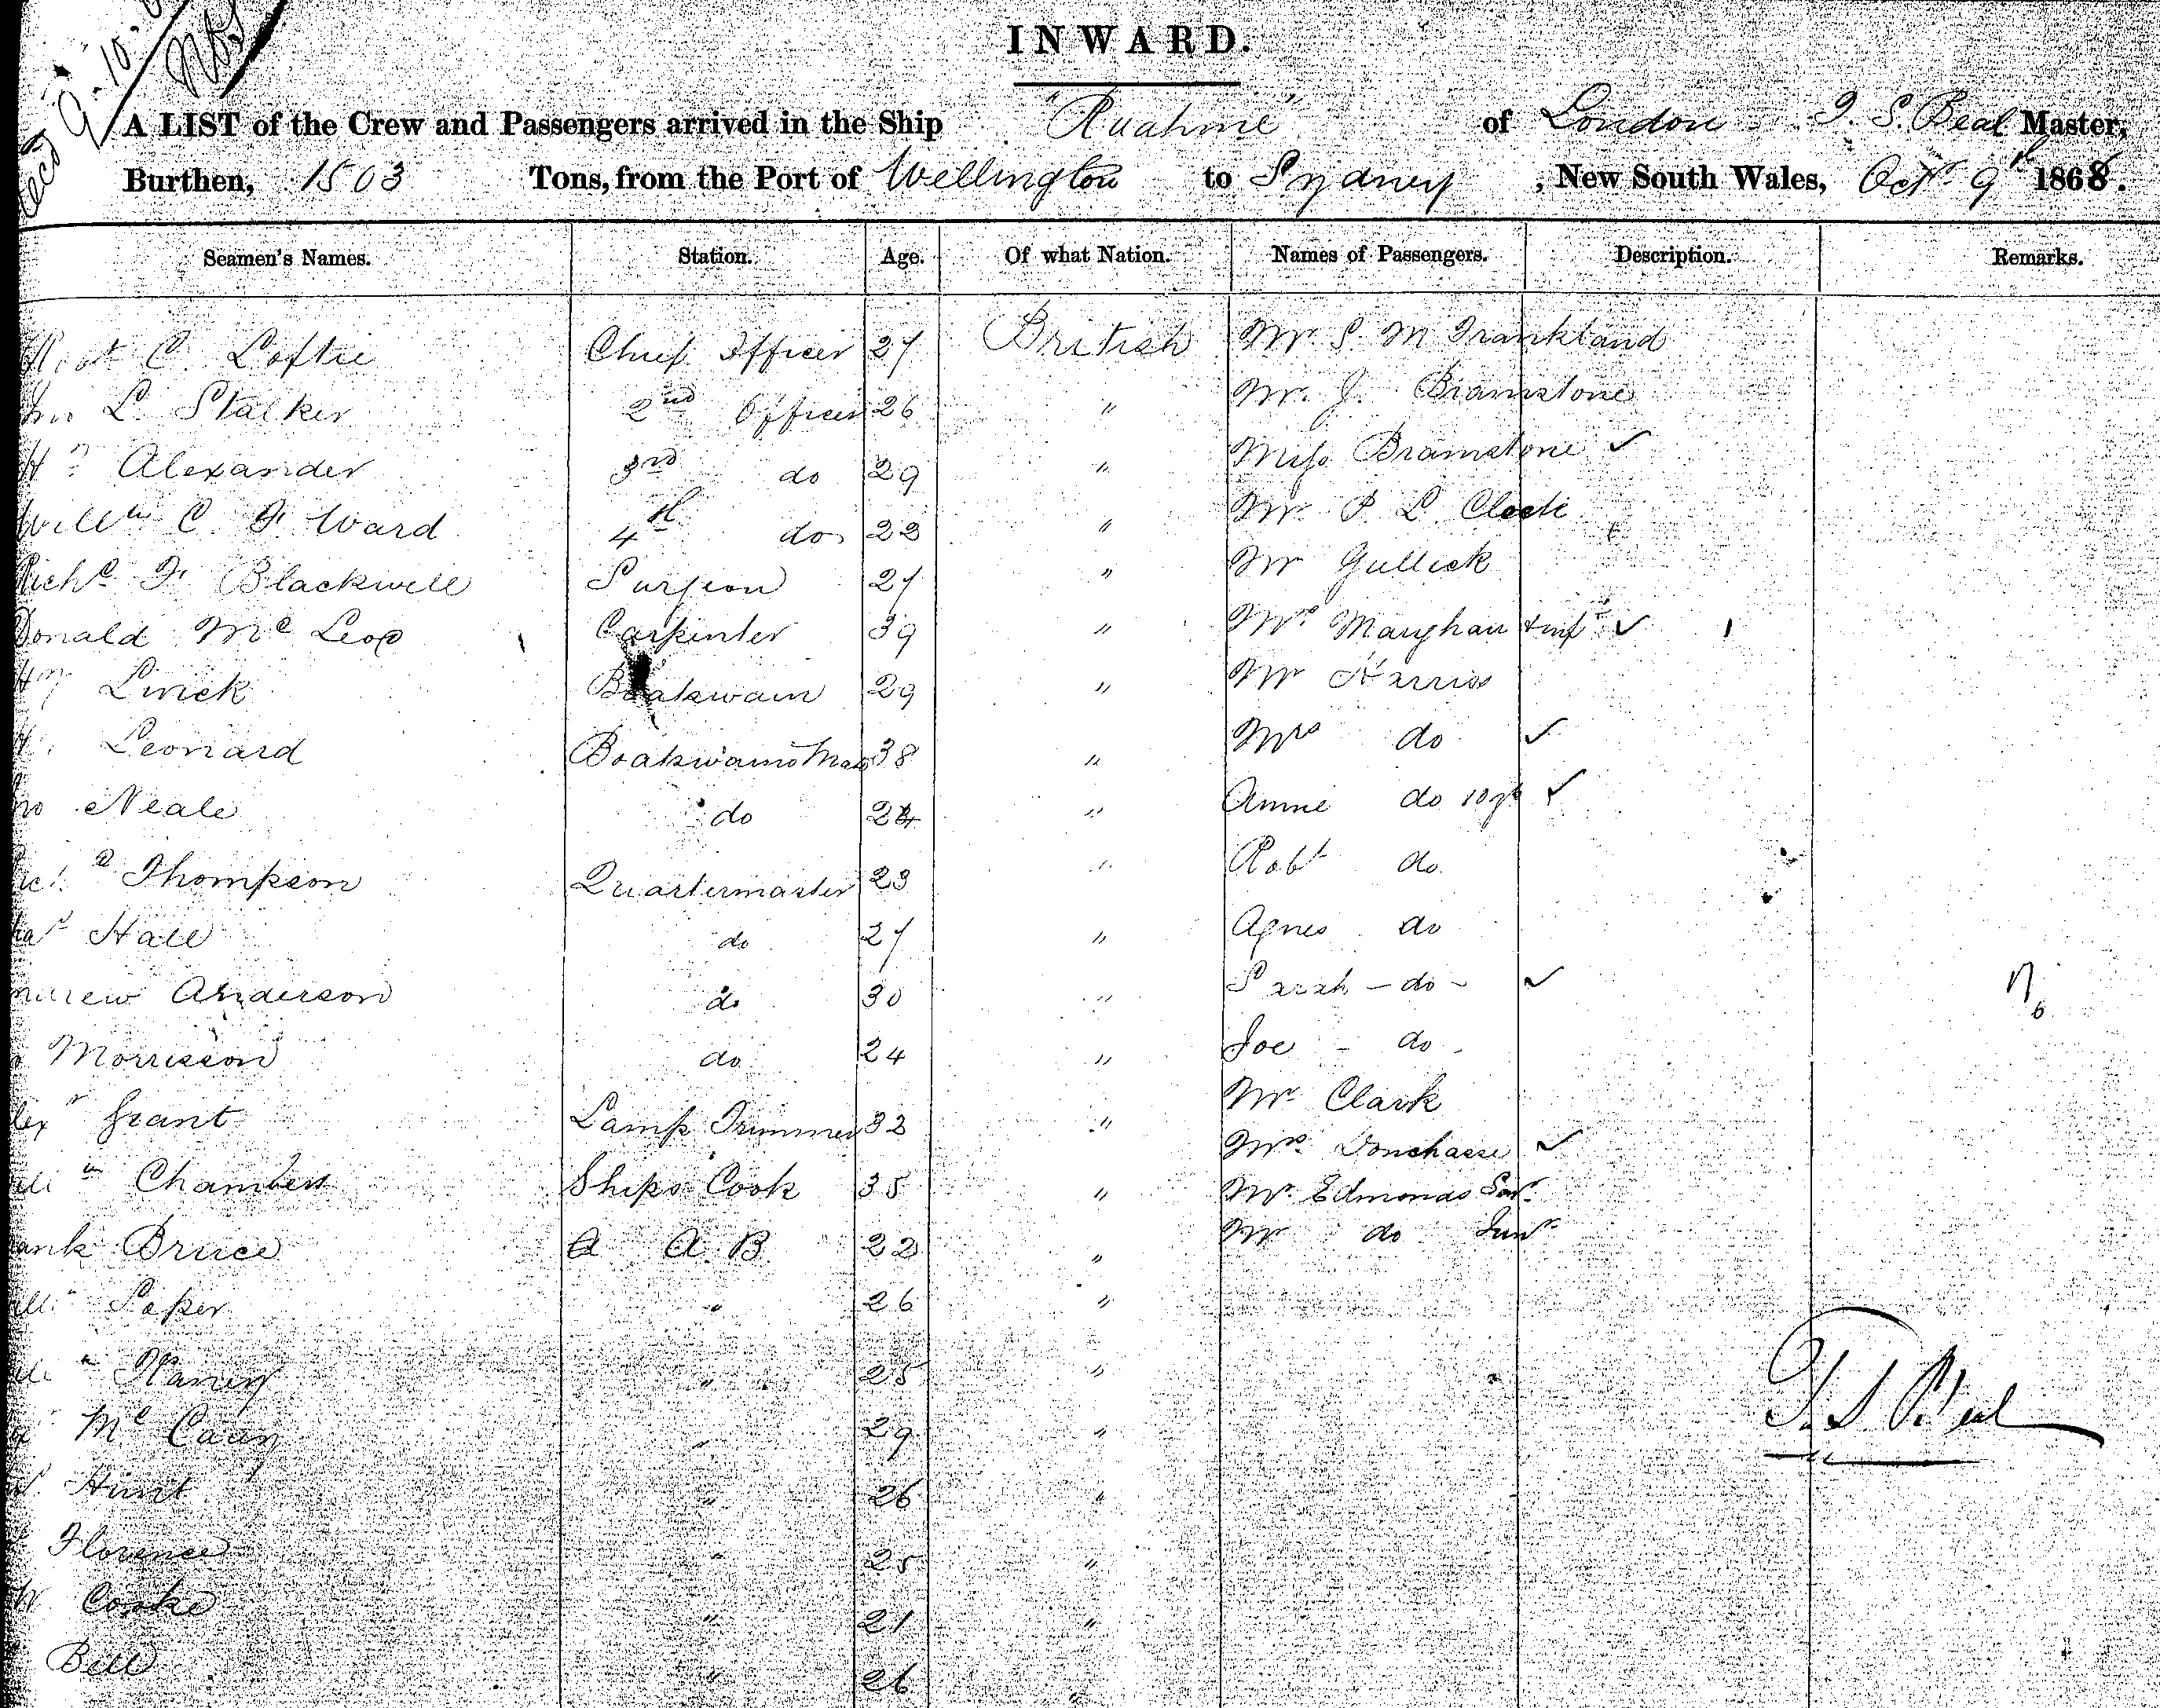 INWARD.
A LIST of the Crew and Passengers arrived in the Ship "Ruahine" of London T. S. Beal Master,
Burthen, 1503 Tons, from the Port of Wellington to Sydney, New South Wales, Octr 9th 1868.
Seamen's Names. Station. Age. Of what Nation. Names of Passengers. Description. Remarks.
Robt C. Loftie Chief Officer 27 British Mr S. M Frankland
Jno L. Stalker 2nd Officer 26 " Mr. J. Bramstone
Alexander 3rd do 29 " Miss Bramstone ✓
Willm C. F. Ward 4th do 22 " Mr P L
Richd F. Blackwell Surgeon 27 " Mr Gullick
Donald Mc Leod Carpenter 39 " Mrs & inft ✓
Boatswain 29 " Mr Harriss
Leonard Boatswains Mate 38 " Mrs do ✓
Neale do 24 " Annie do 10 yrs ✓
Thompson Quartermaster 23 " Robt do
Hall do 27 " Agnes do
Andrew Anderson do 30 " Sarah - do - ✓
Morrisson do 24 " Joe - do -
Alexr Grant Lamp Trimmer 32 " Mr Clark
Mrs ✓
Willm Chambers Ships Cook 35 " Mr. Edmonds Senr.
Frank Bruce A A B 22 " Mr do Junr
Soper " 26 "
" 25 "
Mc " 29 "
Hunt " 26 "
Florence " 25 "
W. Cooke " 21 "
Bell " 26 "
T. S Beal